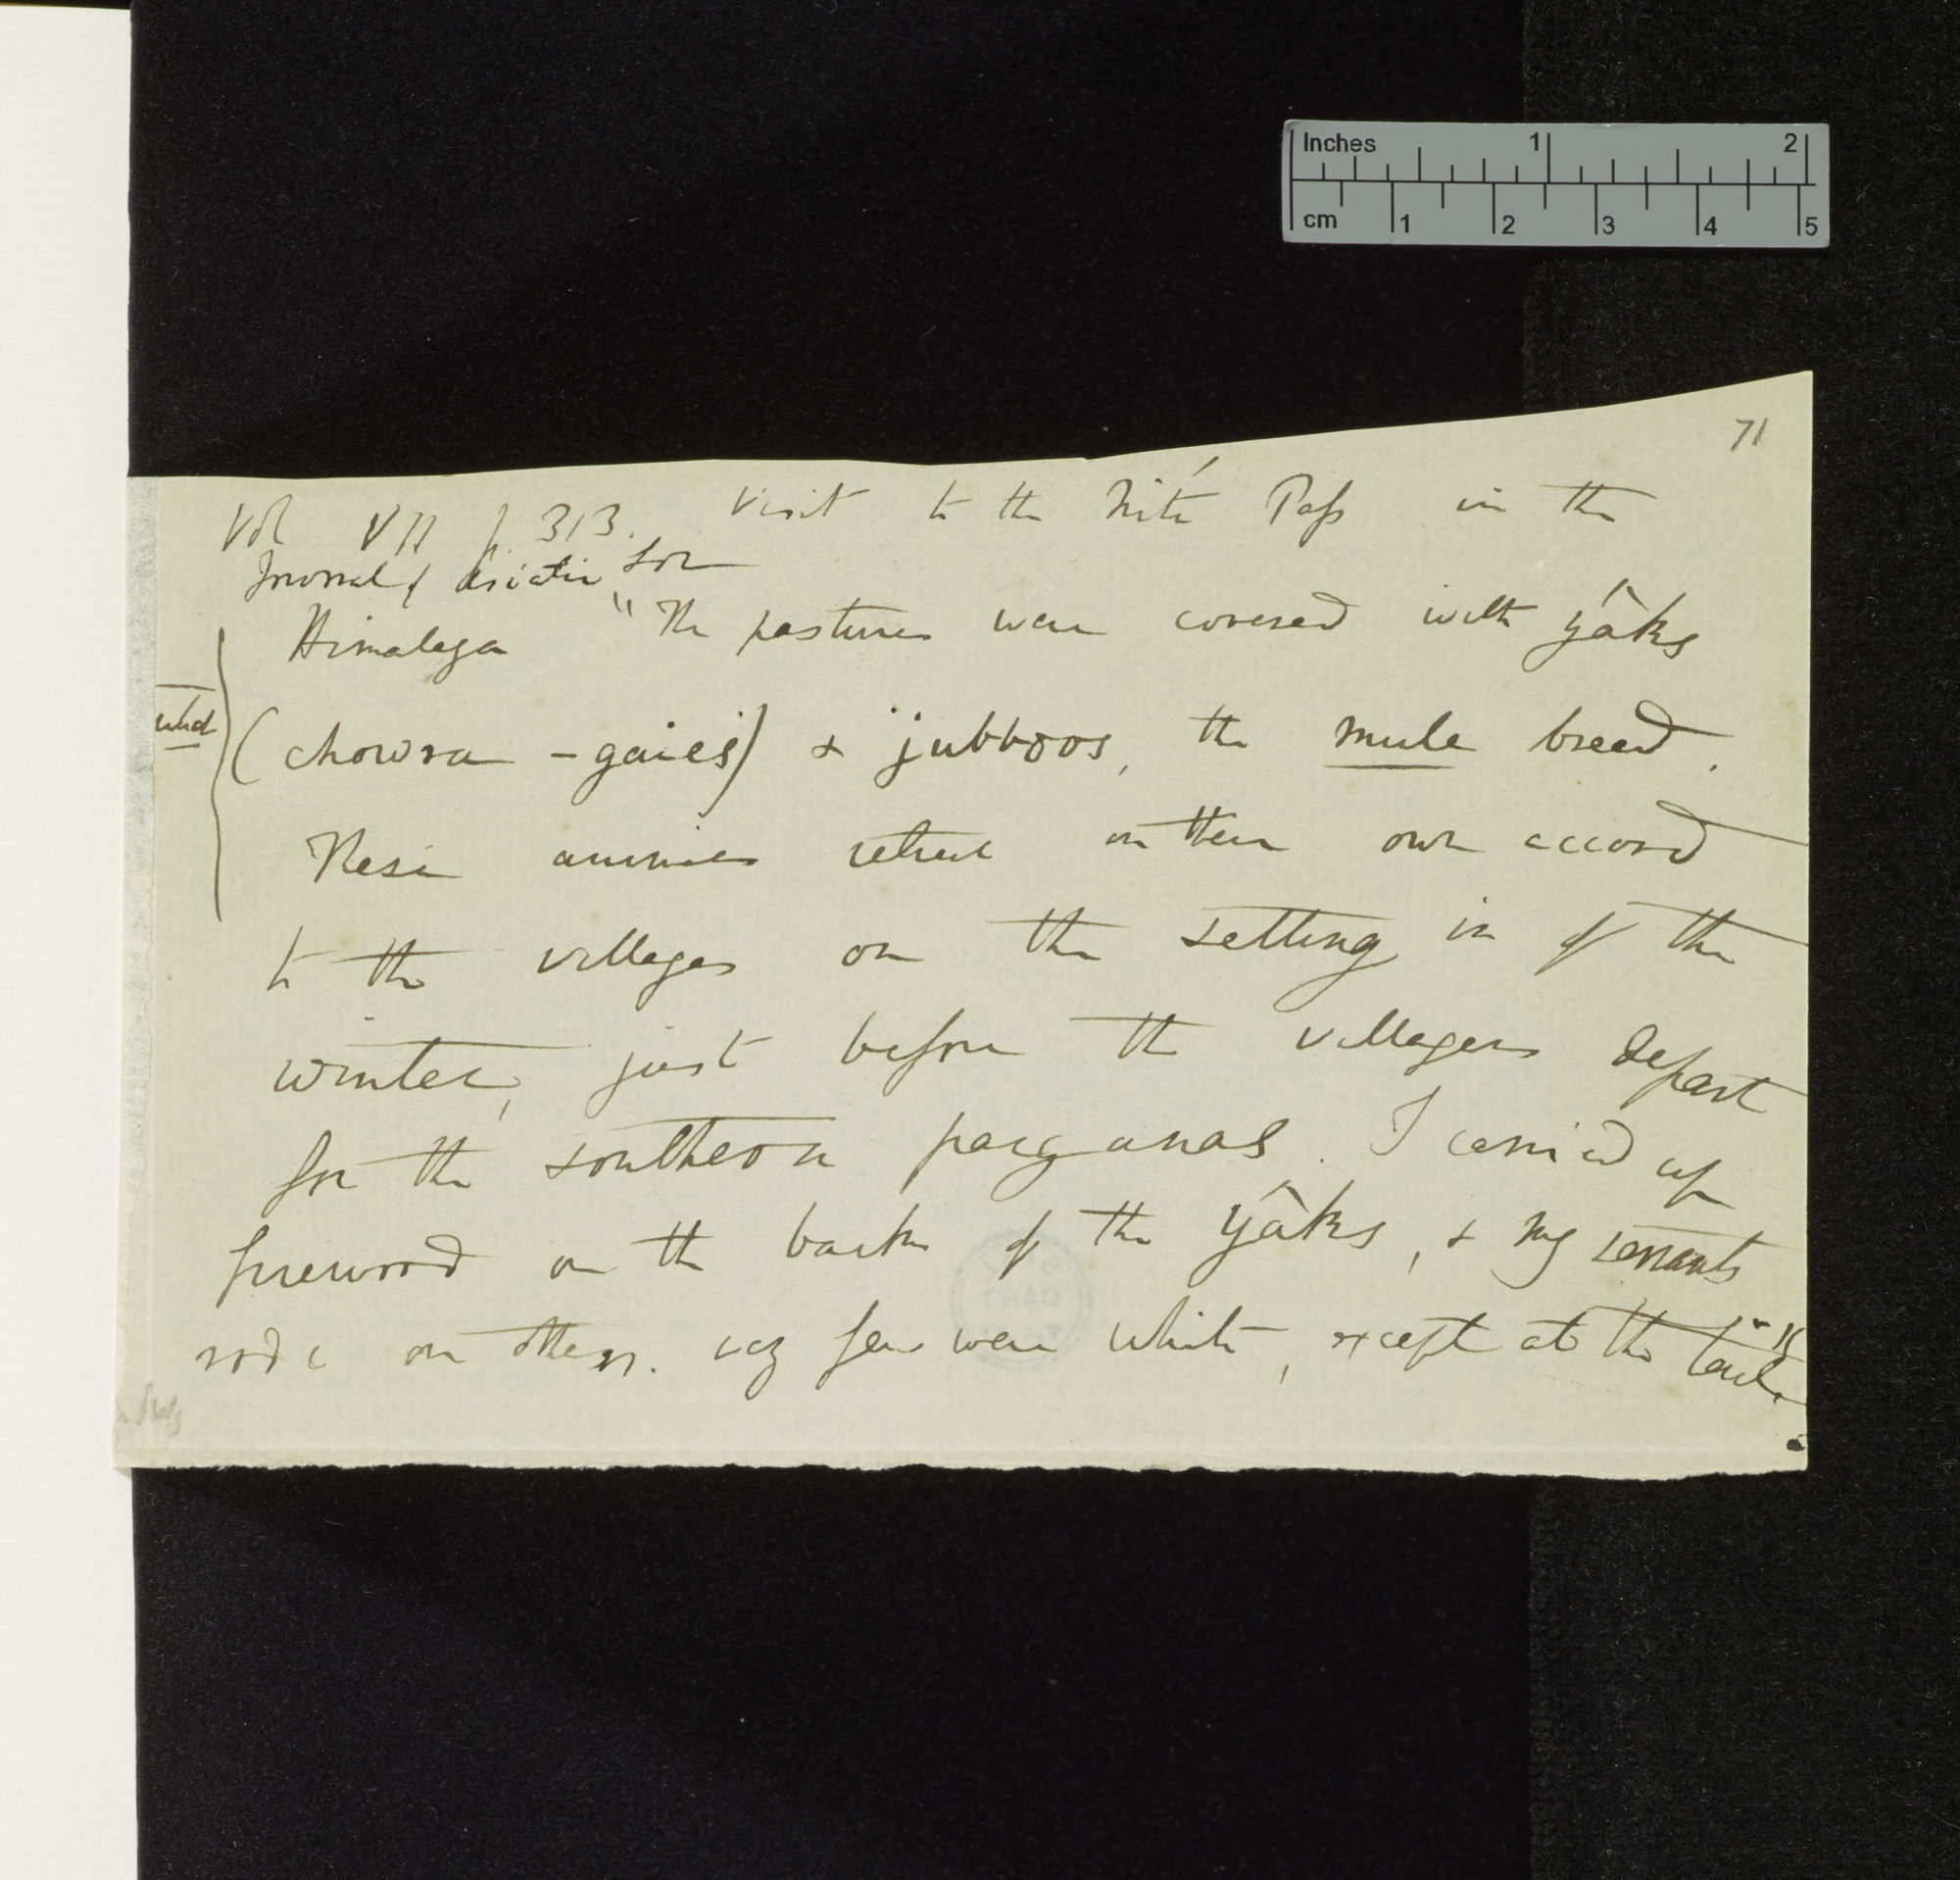 71
Vol VII p. 313. Visit to the Nité Pass in the
Journal of Asiatic Soc
Himalaya "The pastures were covered with yâks
(chowra-gaies) & jubboos, the mule breed.
These animals retreat on their own accord
to the villages on the setting in of the
winter, just before the villagers depart
for the southern parganas. I carried up
firewood on the backs of the yâks, & my servants
rode on others. very few were white, except at the tail."
Inches 1 2
cm 1 2 3 4 5